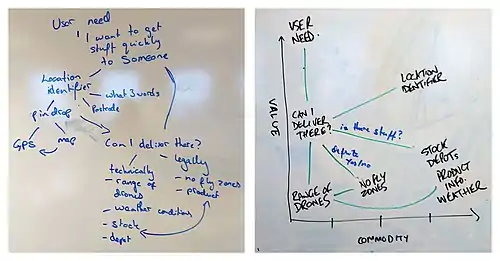 User need
"I want to get
stuff quickly
to Someone
Location
identifier
what 3 words
Postcode
pin drop
GPS
map
Can I deliver there?
technically
- range of
drones
- weather conditions
- stock
- depot
legally
- no fly zones
- product
USER
NEED.
LOCATION
IDENTIFIER
VALUE
CAN I
DELIVER
THERE?
is there stuff?
STOCK
DEPOTS
PRODUCT
INFO.
WEATHER
yes/no
NO FLY
ZONES
RANGE OF
DRONES
COMMODITY